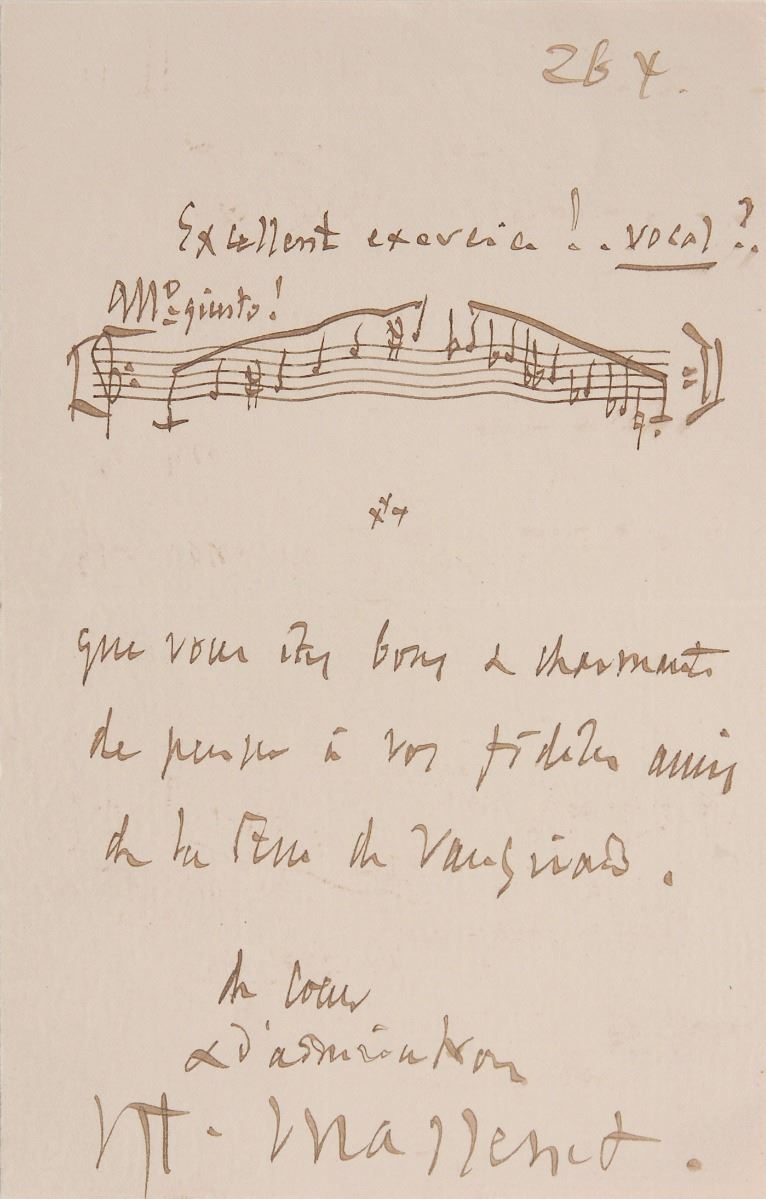 26 X.
Excellent exercice !.. vocal ?..
All.º giusto !
que vous êtes bons & charmants
de penser à vos fidèles amis
de la rue de Vaugirard.
de cœur
& d'admiration
M. Massenet.